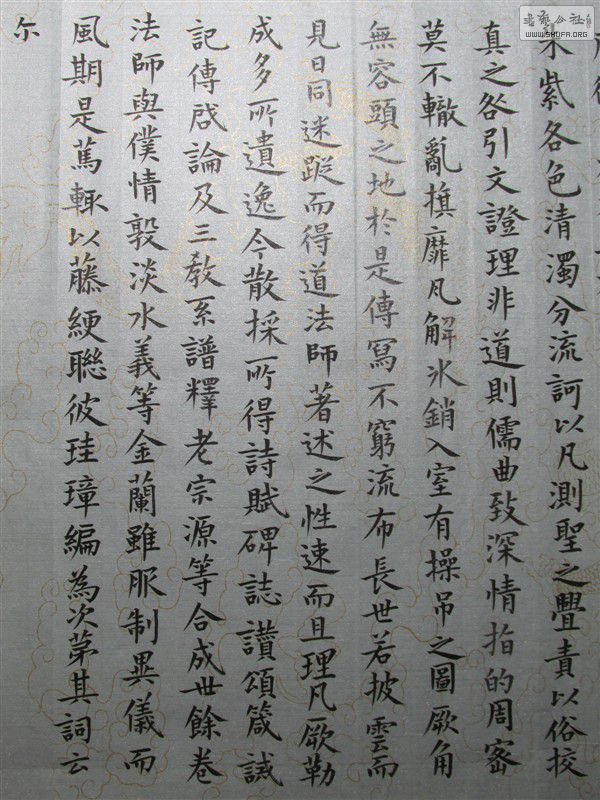 朱紫各色清濁分流訶以凡測聖之舋責以俗挍
真之咎引文證理非道則儒曲致深情指的周密
莫不轍亂旗靡凡解氷銷入室有操吊之圖厥角
無容頭之地於是傳寫不窮流布長世若披雲而
見日同迷蹤而得道法師著述之性速而且理凡厥勒
成多所遺逸今散採所得詩賦碑誌讃頌箴誡
記傳啓論及三教系譜釋老宗源等合成卅餘卷
法師與僕情敦淡水義等金蘭雖服制異儀而
風期是篤輒以藤綆聯彼珪璋編為次第其詞云
尓
書藝公社
WWW.SHUFA.ORG